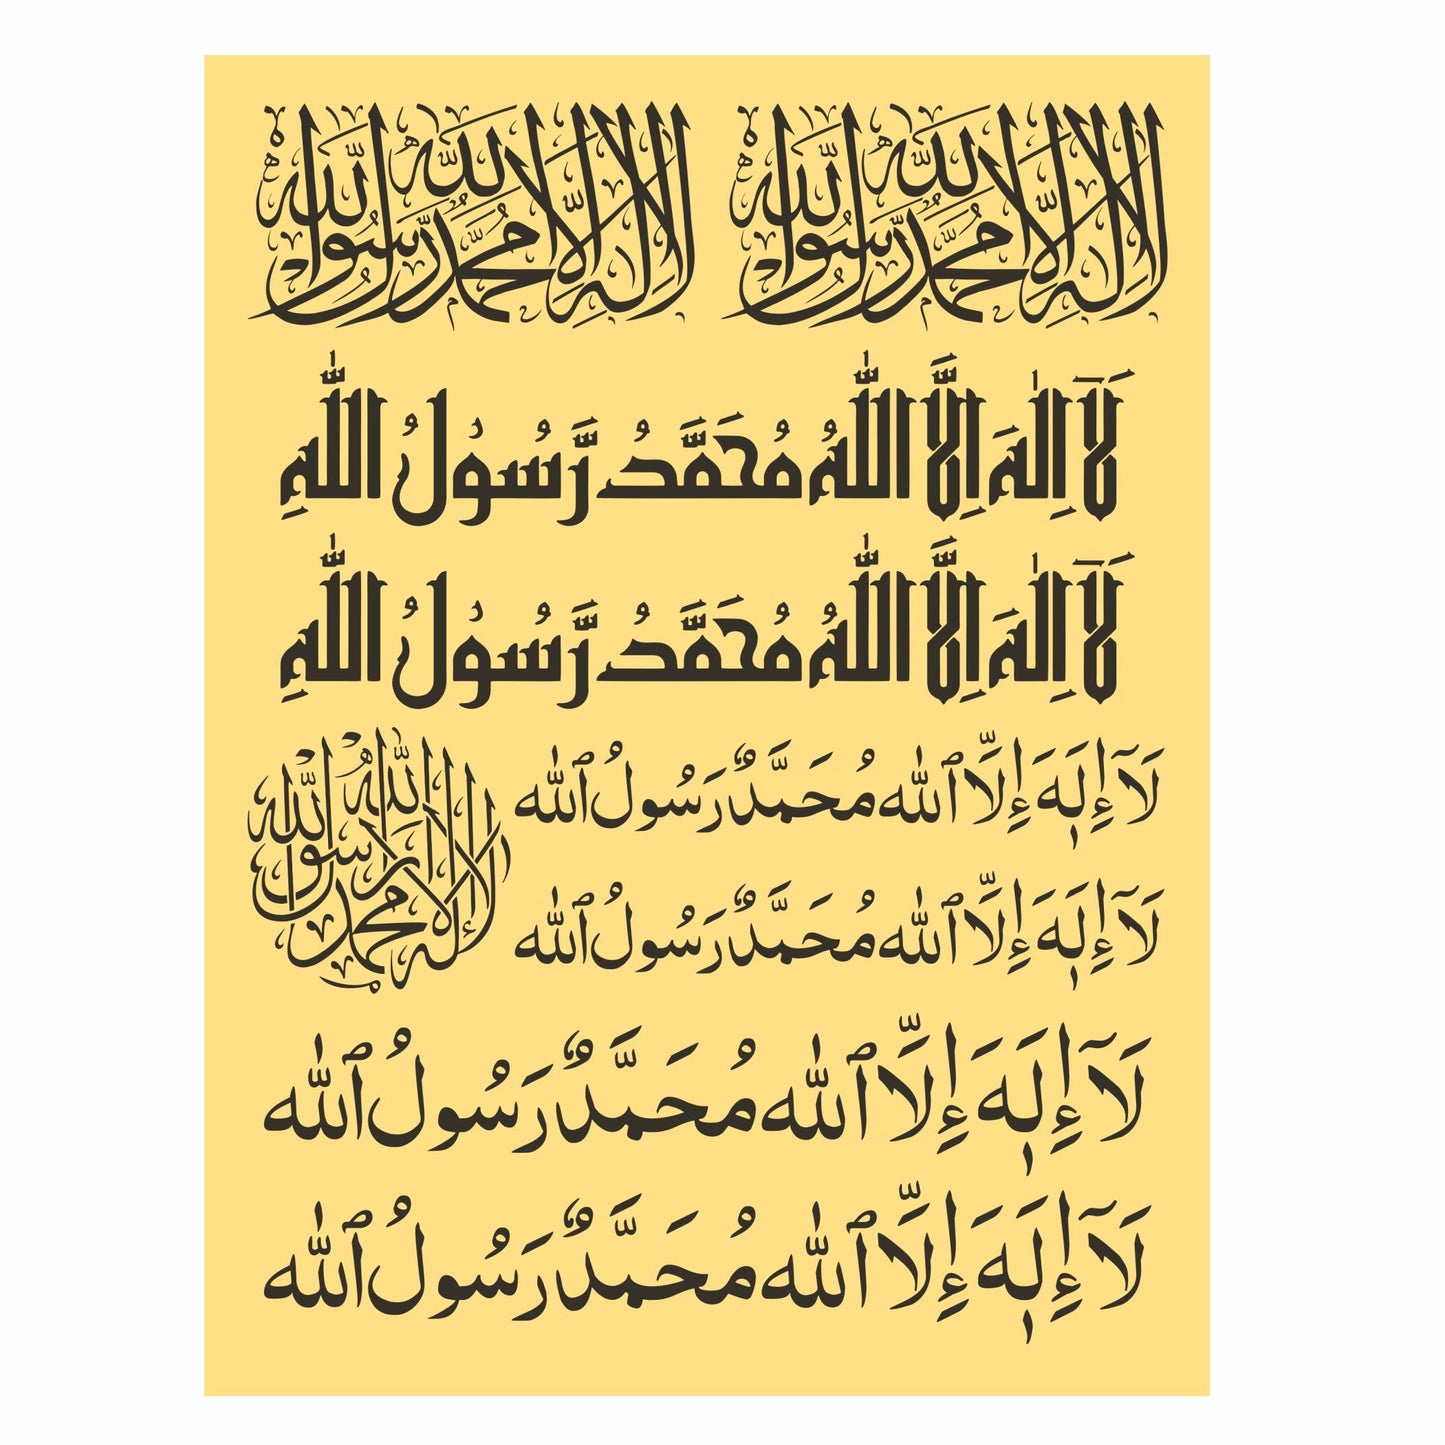 لا إله إلا الله محمد رسول الله
لا إله إلا الله محمد رسول الله
لَآ اِلٰهَ اِلَّا اللّٰهُ مُحَمَّدُ رَّسُوْلُ اللّٰهِ
لَآ اِلٰهَ اِلَّا اللّٰهُ مُحَمَّدُ رَّسُوْلُ اللّٰهِ
لا إله إلا الله محمد رسول الله
لَآ إِلَٰهَ إِلَّا ٱللّٰه مُحَمَّدٌ رَسُولُ ٱللّٰه
لَآ إِلَٰهَ إِلَّا ٱللّٰه مُحَمَّدٌ رَسُولُ ٱللّٰه
لَآ إِلَٰهَ إِلَّا ٱللّٰه مُحَمَّدٌ رَسُولُ ٱللّٰه
لَآ إِلَٰهَ إِلَّا ٱللّٰه مُحَمَّدٌ رَسُولُ ٱللّٰه